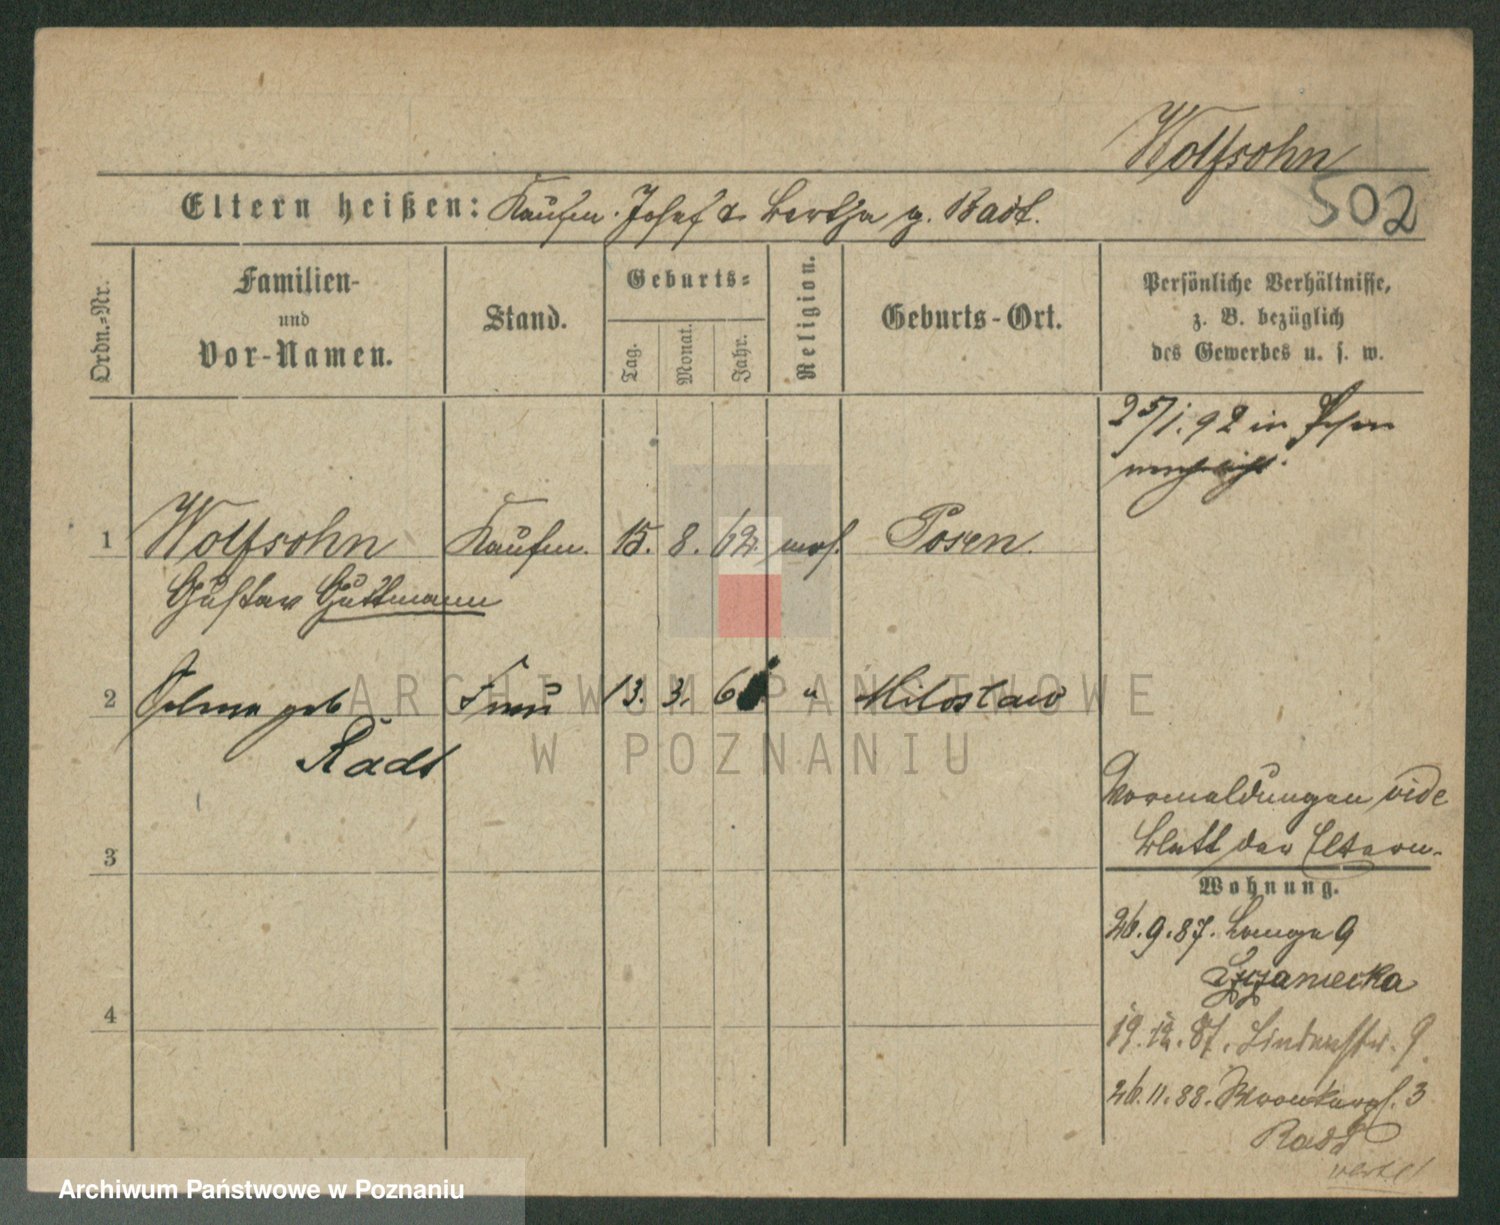 Wolfsohn
502
Eltern heißen: Kaufm. Josef & Bertha g. Badt.
Ordn.=Nr.
Familien-
und
Vor-Namen.
Stand.
Geburts=
Tag.
Monat.
Jahr.
Religion.
Geburts-Ort.
Persönliche Verhältnisse,
z. B. bezüglich
des Gewerbes u. s. w.
25/1. 92 in Posen
1 Wolfsohn Kaufm. 15. 8. 62. mos. Posen.
Gustav Guttmann
2 Selma geb Frau 13. 3. 6 " Miloslaw
Radt
Vormeldungen vide
Blatt der Eltern.
3
Wohnung.
26.9.87. Lange 9
4
19.12.87. Lindenstr. 9
26.11.88. Wronkerpl. 3
Radt
ARCHIWUM PAŃSTWOWE
W POZNANIU
Archiwum Państwowe w Poznaniu